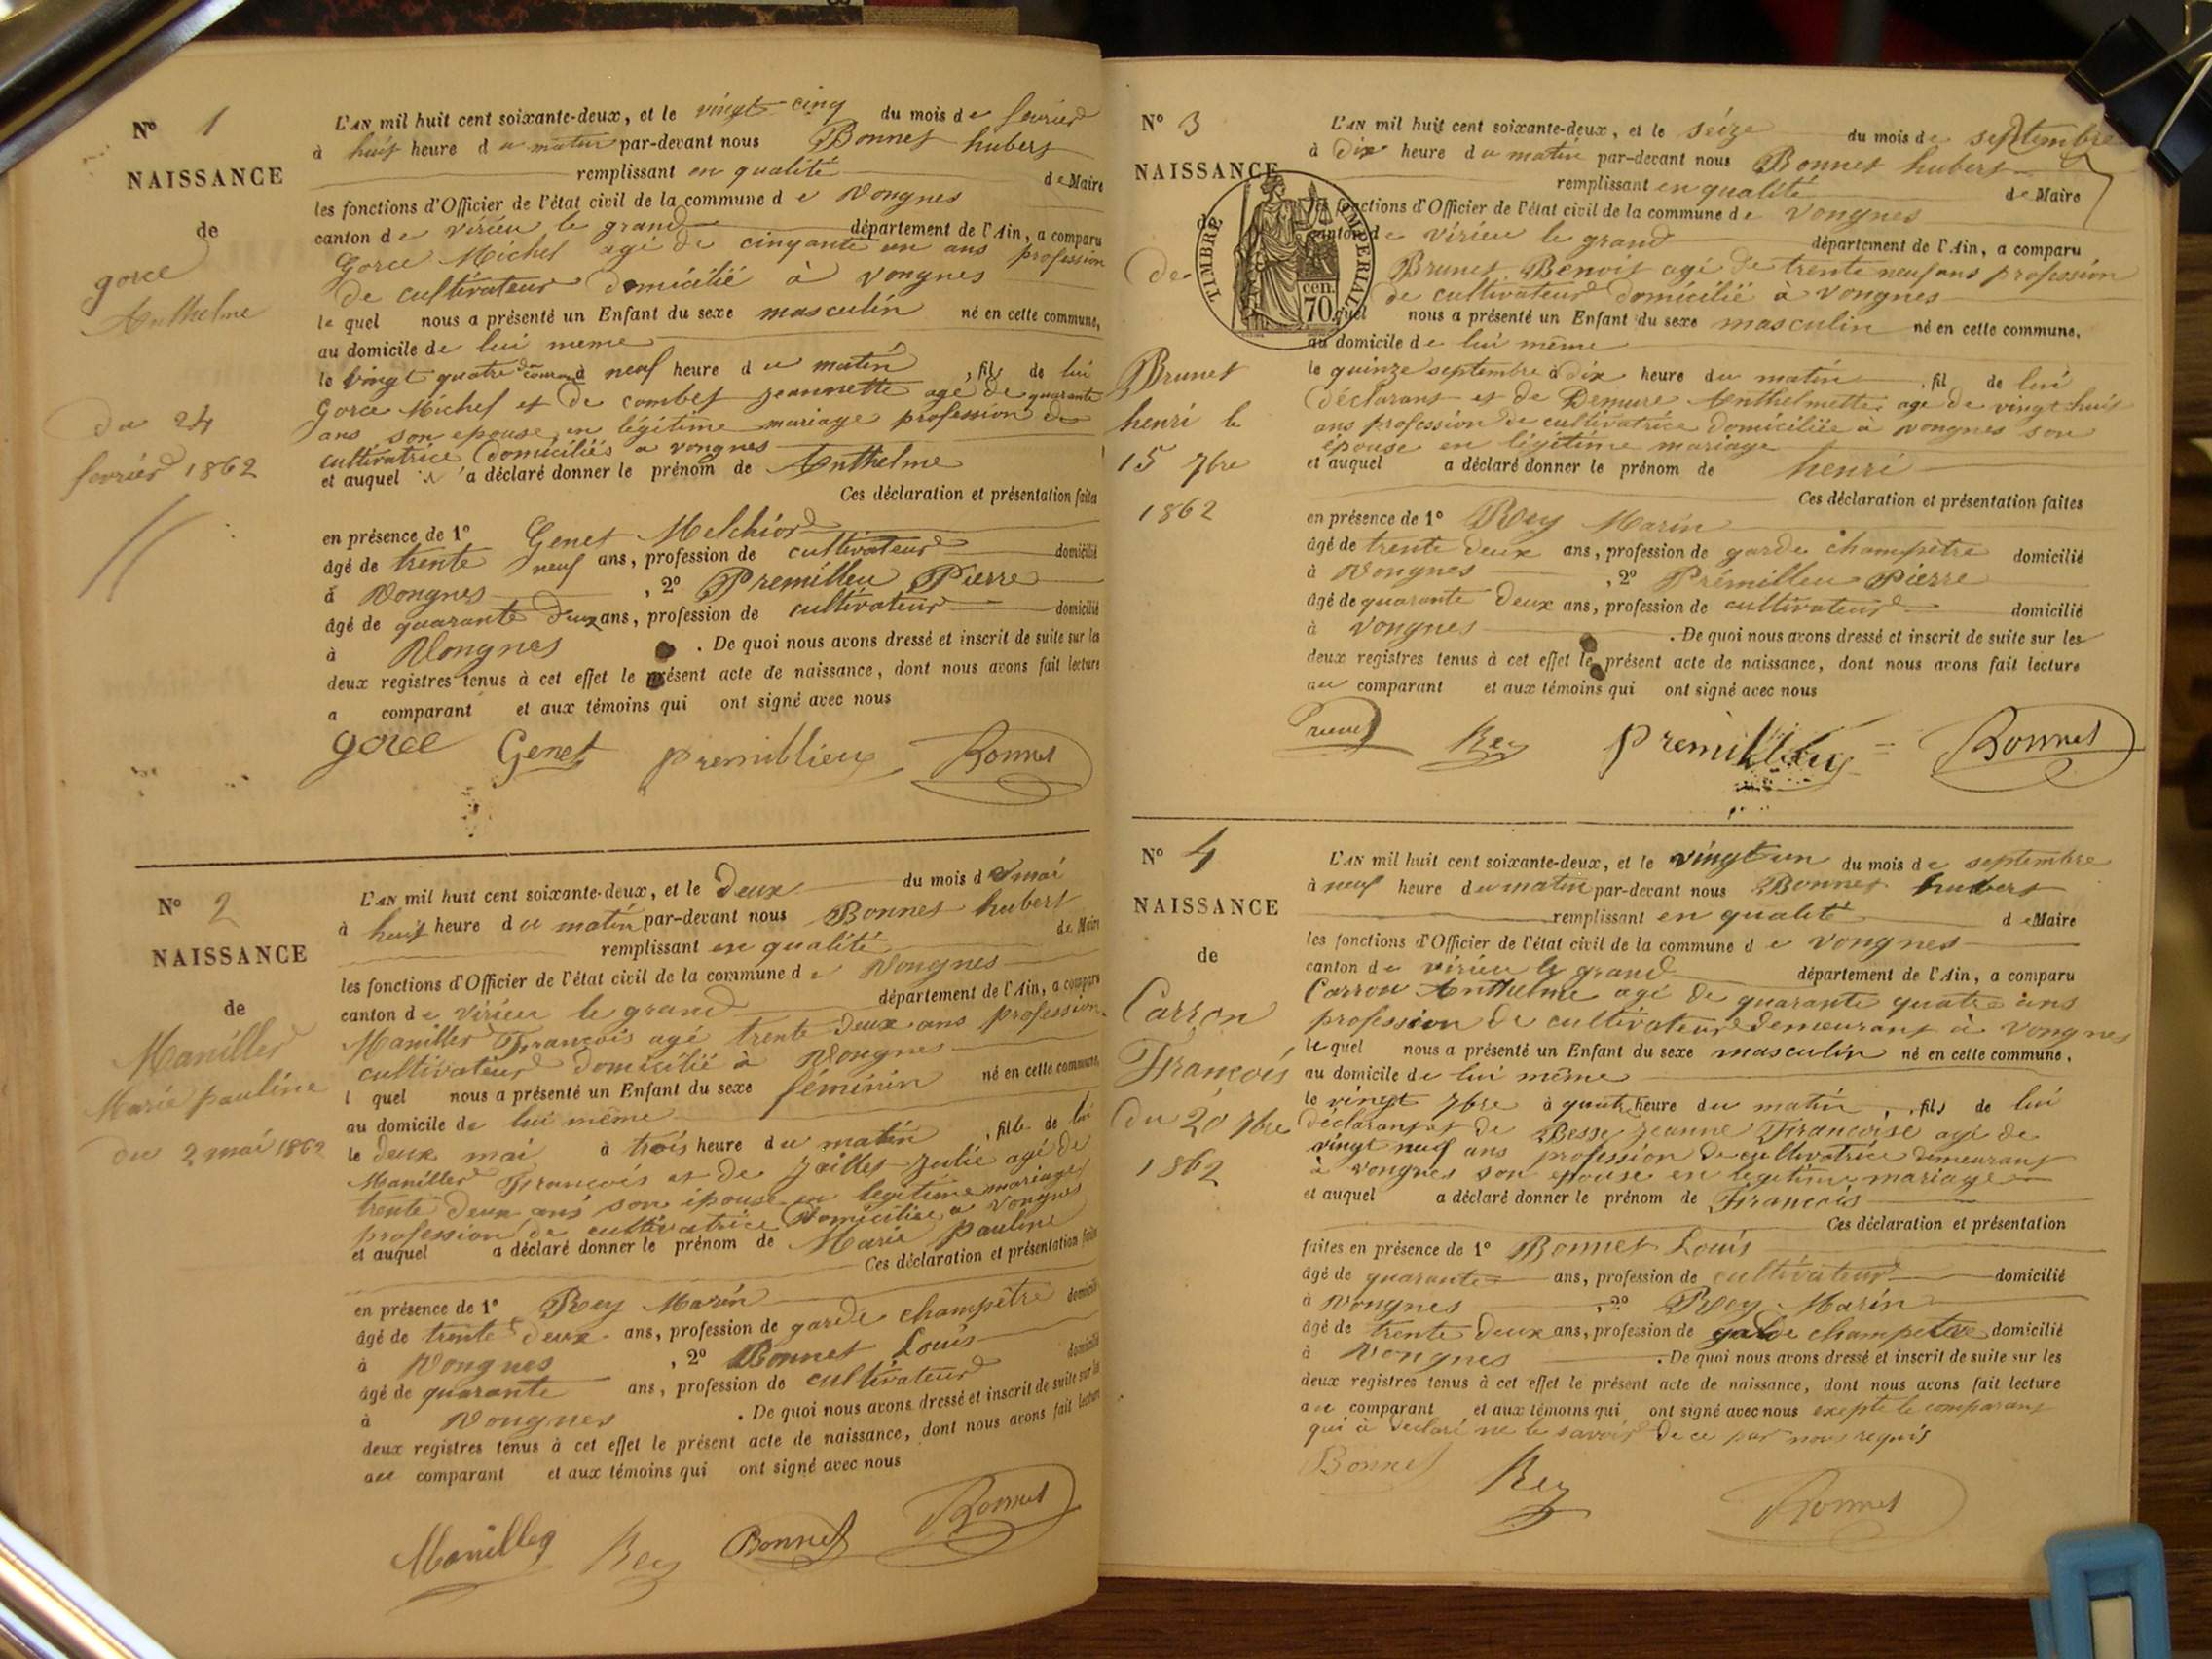 N° 1
NAISSANCE
de
gorce
Anthelme
du 24
fevrier 1862
L'AN mil huit cent soixante-deux, et le vingt-cinq du mois de fevrier
à huit heure du matin par-devant nous Bonnet hubert
remplissant en qualité de Maire
les fonctions d'Officier de l'état civil de la commune de Vongnes
canton de virieu le grand département de l'Ain, a comparu
Gorce Michel agé de cinquante un ans profession
de cultivateur domicilié à Vongnes
le quel nous a présenté un Enfant du sexe masculin né en cette commune,
au domicile de lui meme
le vingt quatre courant à neuf heure du matin, fils de lui
Gorce Michel et de combet jeannette agé de quarante
ans son epouse en légitime mariage profession de
cultivatrice domiciliés a vongnes
et auquel a déclaré donner le prénom de Anthelme
Ces déclaration et présentation faites
en présence de 1° Genet Melchior
âgé de trente neuf ans, profession de cultivateur domicilié
à Vongnes, 2° Premilleu Pierre
âgé de quarante deux ans, profession de cultivateur domicilié
à Vongnes. De quoi nous avons dressé et inscrit de suite sur les
deux registres tenus à cet effet le présent acte de naissance, dont nous avons fait lecture
a comparant et aux témoins qui ont signé avec nous
gorce Genet premillieu Bonnet
N° 2
NAISSANCE
de
Maniller
Marie pauline
du 2 mai 1862
L'AN mil huit cent soixante-deux, et le Deux du mois de mai
à huit heure du matin par-devant nous Bonnet hubert
remplissant en qualité de Maire
les fonctions d'Officier de l'état civil de la commune de Vongnes
canton de virieu le grand département de l'Ain, a comparu
Maniller François agé trente deux ans profession
cultivateur domicilié à Vongnes
l quel nous a présenté un Enfant du sexe féminin né en cette commune,
au domicile de lui même
le deux mai à trois heure du matin, fille de lui
Maniller François et de Jaillet Julie agé de
trente deux ans son épouse en legitime mariage
profession de cultivatrice domiciliée a Vongnes
et auquel a déclaré donner le prénom de Marie pauline
Ces déclaration et présentation faites
en présence de 1° Rey Marin
âgé de trente deux ans, profession de garde champêtre domicilié
à Vongnes, 2° Bonnet Louis
âgé de quarante ans, profession de cultivateur domicilié
à Vongnes. De quoi nous avons dressé et inscrit de suite sur les
deux registres tenus à cet effet le présent acte de naissance, dont nous avons fait lecture
au comparant et aux témoins qui ont signé avec nous
Maniller Rey Bonnet Bonnet
N° 3
NAISSANCE
de
de
Brunet
henri le
15 7bre
1862
TIMBRE IMPERIAL
70 cen.
L'AN mil huit cent soixante-deux, et le seize du mois de septembre
à dix heure du matin par-devant nous Bonnet hubert
remplissant en qualité de Maire
les fonctions d'Officier de l'état civil de la commune de Vongnes
canton de virieu le grand département de l'Ain, a comparu
Brunet Benoit agé de trente neuf ans profession
de cultivateur domicilié à Vongnes
quel nous a présenté un Enfant du sexe masculin né en cette commune.
au domicile de lui même
le quinze septembre à dix heure du matin, fil de lui
déclarant et de Demure Anthelmette agé de vingt huit
ans profession de cultivatrice domiciliée à vongnes son
épouse en légitime mariage
et auquel a déclaré donner le prénom de henri
Ces déclaration et présentation faites
en présence de 1° Rey Marin
âgé de trente deux ans, profession de garde champêtre domicilié
à Vongnes, 2° Prémilleu Pierre
âgé de quarante deux ans, profession de cultivateur domicilié
à Vongnes. De quoi nous avons dressé et inscrit de suite sur les
deux registres tenus à cet effet le présent acte de naissance, dont nous avons fait lecture
au comparant et aux témoins qui ont signé avec nous
Rey premillieu Bonnet
N° 4
NAISSANCE
de
Carron
François
du 20 7bre
1862
L'AN mil huit cent soixante-deux, et le vingt un du mois de septembre
à neuf heure du matin par-devant nous Bonnet hubert
remplissant en qualité de Maire
les fonctions d'Officier de l'état civil de la commune de Vongnes
canton de virieu le grand département de l'Ain, a comparu
Carron Anthelme agé de quarante quatre ans
profession de cultivateur demeurant à Vongnes
le quel nous a présenté un Enfant du sexe masculin né en cette commune,
au domicile de lui même
le vingt 7bre à quatre heure du matin, fils de lui
déclarant et de Besse Jeanne Françoise agé de
vingt neuf ans profession de cultivatrice demeurant
à vongnes son épouse en legitime mariage
et auquel a déclaré donner le prénom de François
Ces déclaration et présentation
faites en présence de 1° Bonnet Louis
âgé de quarante ans, profession de cultivateur domicilié
à Vongnes, 2° Rey Marin
âgé de trente deux ans, profession de garde champetre domicilié
à Vongnes. De quoi nous avons dressé et inscrit de suite sur les
deux registres tenus à cet effet le présent acte de naissance, dont nous avons fait lecture
au comparant et aux témoins qui ont signé avec nous exepté le comparant
qui à declaré ne le savoir de ce par nous requis
Bonnet Rey Bonnet